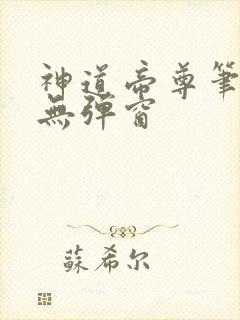 神道帝尊筆
無彈窗
蘇希尔